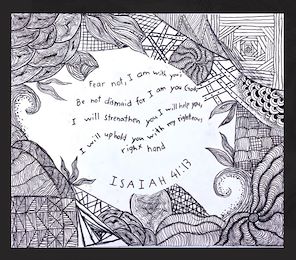 Fear not, I am with you;
Be not dismaid for I am you God.
I will strengthen you, I will help you,
I will uphold you with my righteous
right hand
ISAIAH 41:13